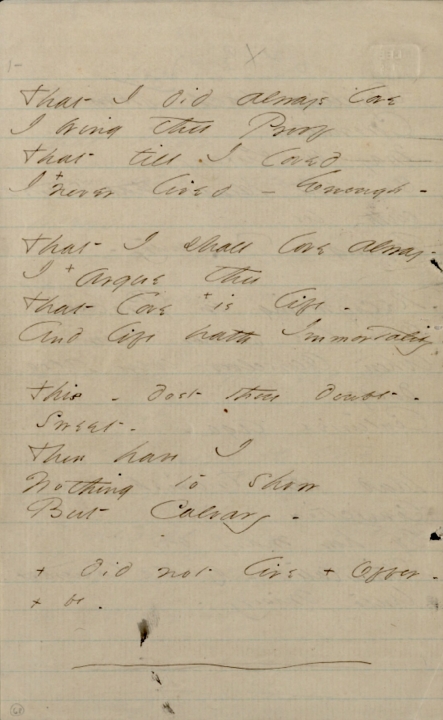 That I did always love
I bring thee Proof
That till I loved
I + never lived - Enough -
That I shall love alway -
I + argue thee
That love + is life -
And life hath Immortality
This - dost thou doubt -
Sweet -
Then have I
Nothing to show
But Calvary -
+ did not live + Offer -
+ be -